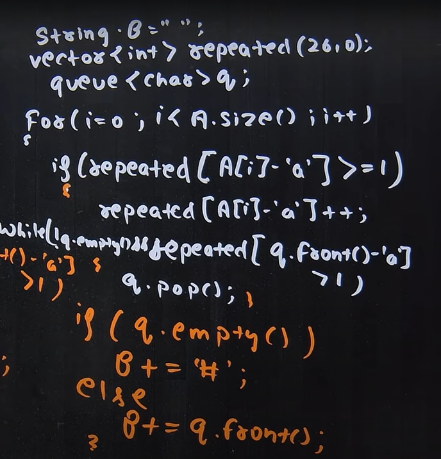 String B = " ";
vector<int> repeated(26,0);
queue<char>q;
for(i=0 ; i< A.size() ; i++)
{
if (repeated [A[i]-'a'] >=1)
{
repeated [A[i]-'a']++;
while(!q.empty()&&repeated[q.front()-'a']
>1)
t()-'a'] {
>1)
q.pop(); }
if (q.empty())
B+='#';
;
else
B+=q.front();
}